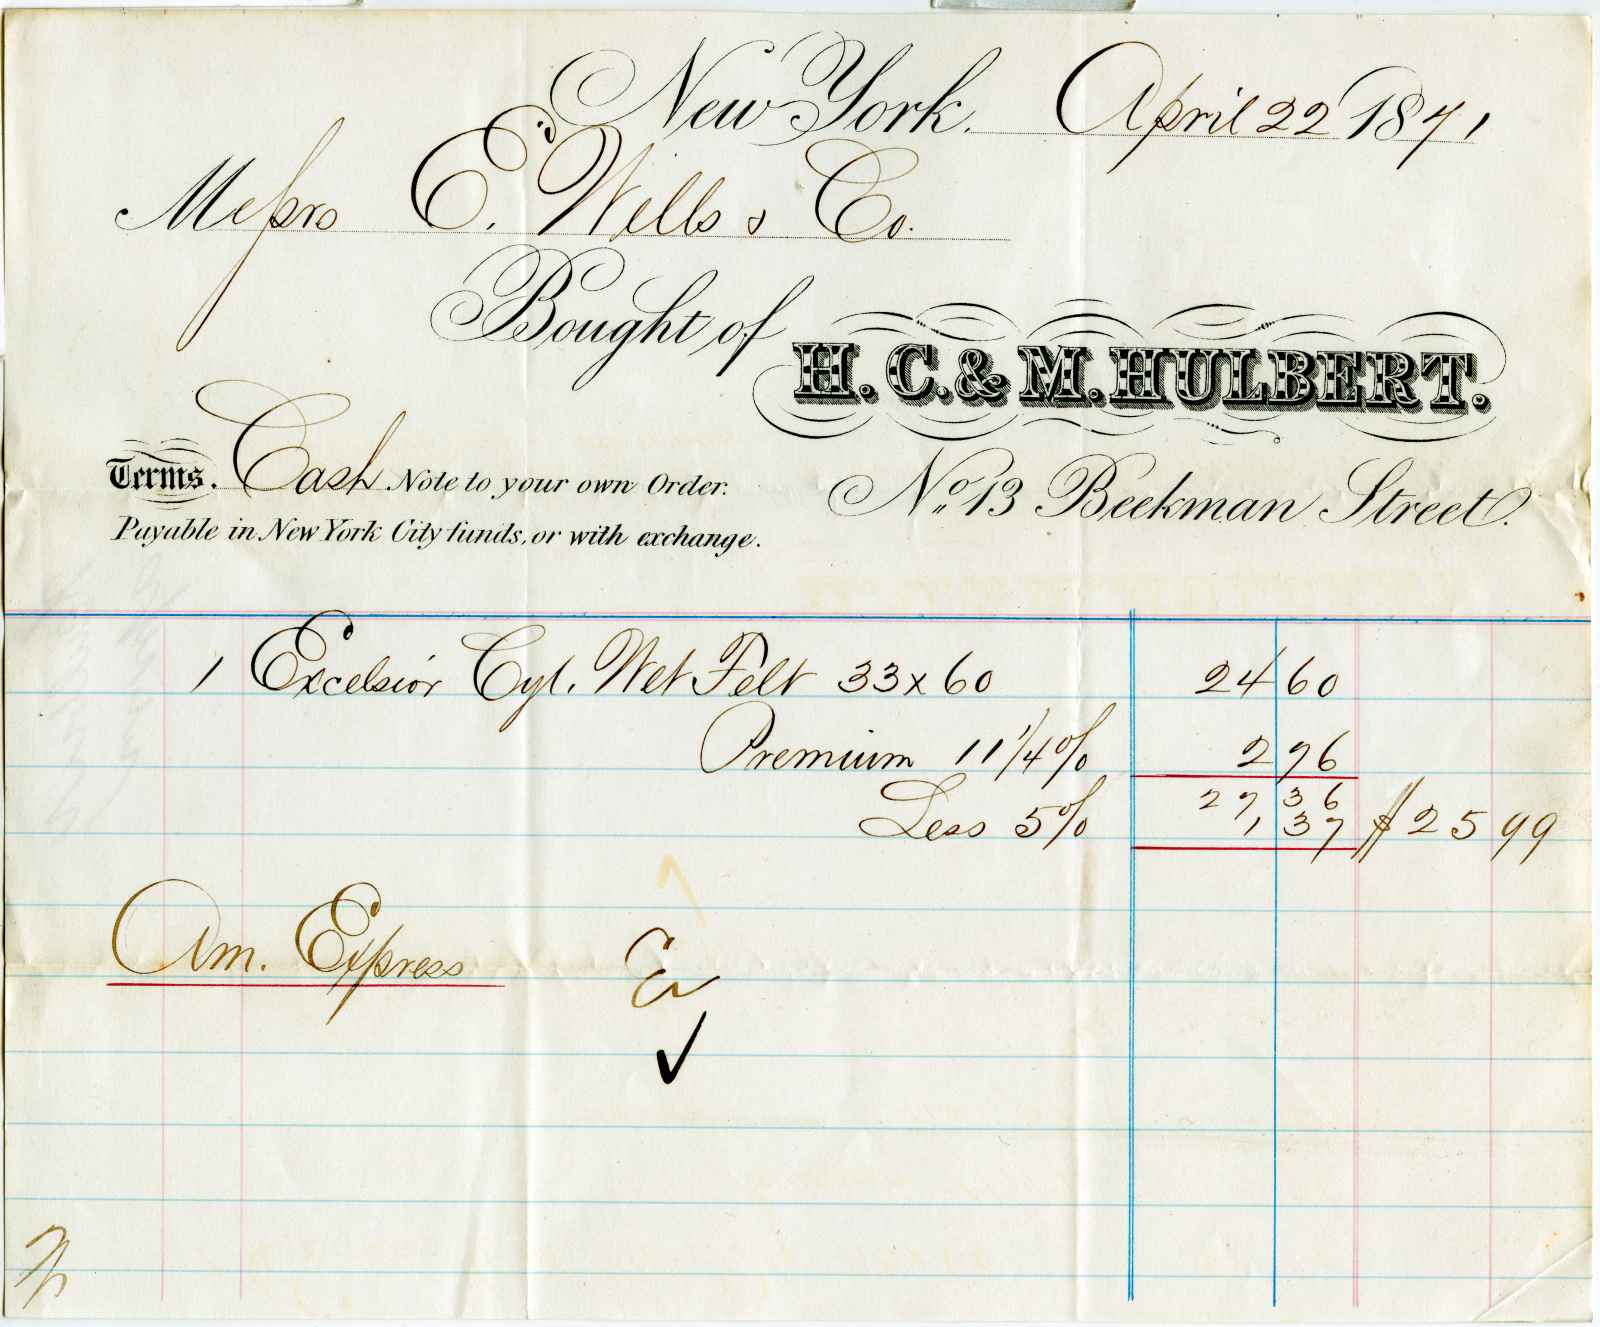 New York. April 22 1871
Messrs E. Wells & Co.
Bought of H. C. & M. HULBERT.
Terms. Cash Note to your own Order.
No. 13 Beekman Street.
Payable in New York City funds, or with exchange.
1 Excelsior Cyl. Wet Felt 33 x 60 24 60
Premium 11 1/4 % 2 76
27 36
Less 5 % 1 37 $25 99
Am. Express